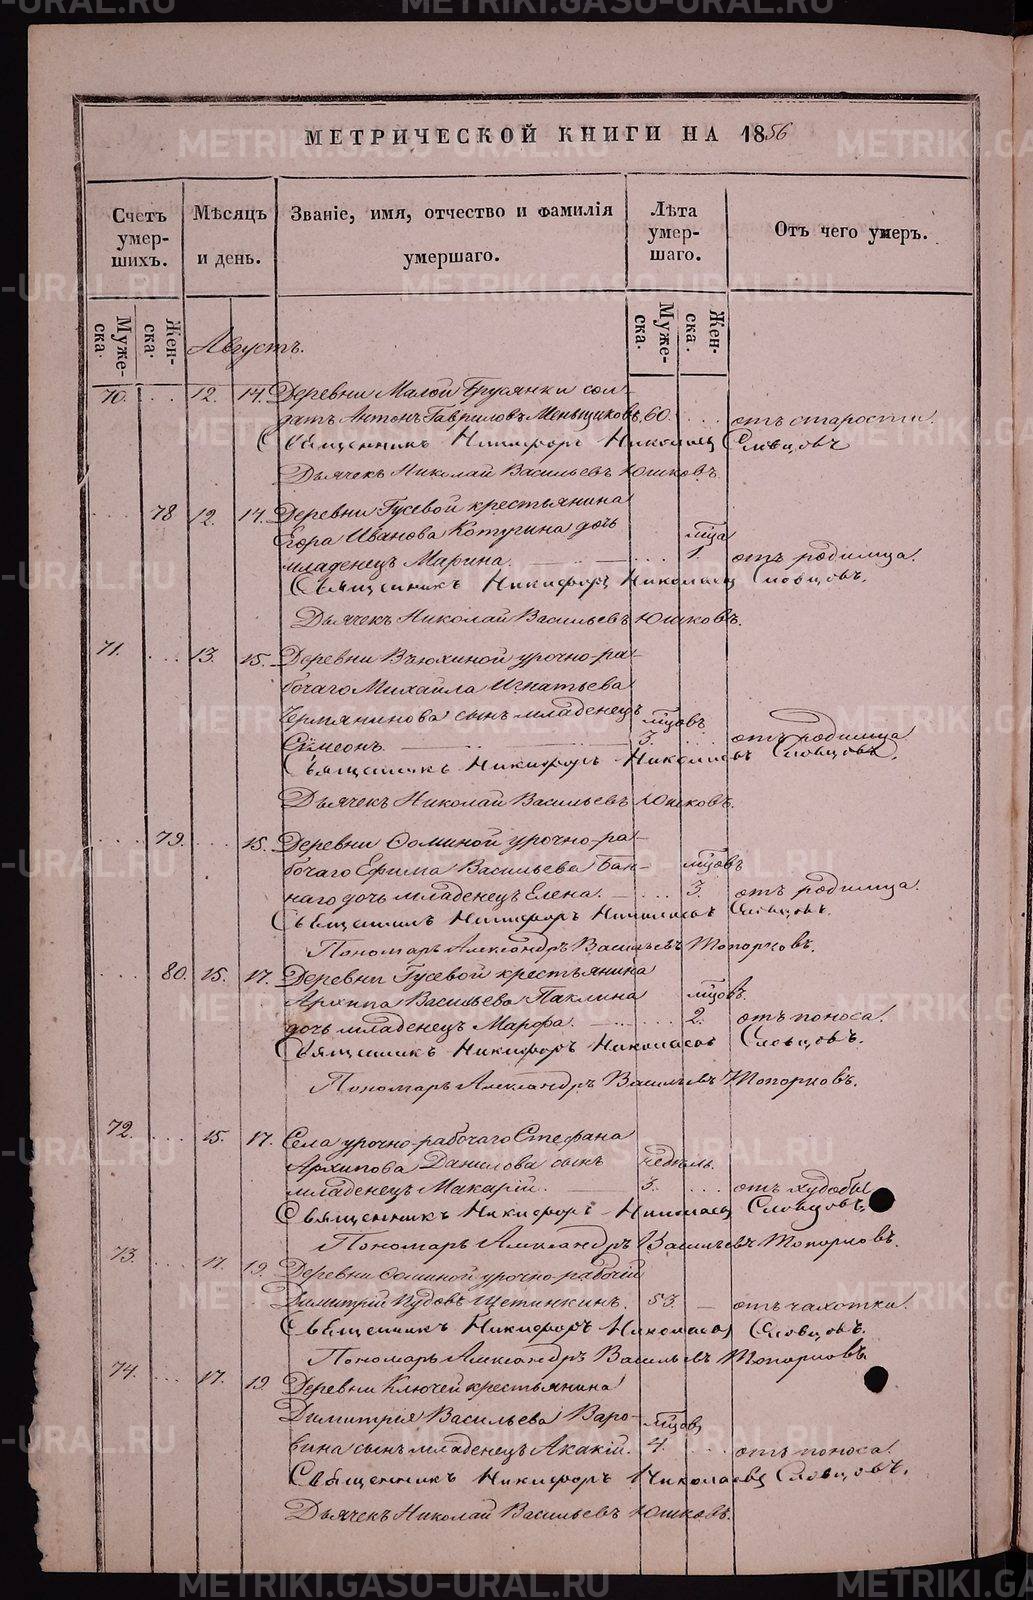 МЕТРИЧЕСКОЙ КНИГИ НА 1856
Счетъ умер-шихъ.
Мѣсяцъ и день.
Званіе, имя, отчество и фамилія умершаго.
Лѣта умер-шаго.
Отъ чего умеръ.
Муже-ска.
Жен-ска.
Муже-ска.
Жен-ска.
Августъ.
70. 12. 14. Деревни Малой Грязянки сол-
датъ Антонъ Гавриловъ Меньщиковъ. 60. отъ старости.
Священникъ Никифоръ Николаевъ Словцовъ
Дьячекъ Николай Васильевъ Юшковъ.
78 12. 14. Деревни Гусевой крестьянина
Егора Иванова Котугина дочь мца
младенецъ Марина. 1. отъ родимца.
Священникъ Никифоръ Николаевъ Словцовъ.
Дьячекъ Николай Васильевъ Юшковъ.
71. 13. 15. Деревни Вьюхиной урочно-ра-
бочаго Михаила Игнатьева
Чермянинова сынъ младенецъ мцовъ
Симеонъ. 3. отъ родимца
Священникъ Никифоръ Николаевъ Словцовъ.
Дьячекъ Николай Васильевъ Юшковъ.
79. 15. Деревни Ѳоминой урочно-ра-
бочаго Ефима Васильева Бан- мцовъ
наго дочь младенецъ Елена. 3. отъ родимца.
Священникъ Никифоръ Николаевъ Словцовъ.
Пономарь Александръ Васильевъ Топорковъ.
80. 15. 17. Деревни Гусевой крестьянина
Архипа Васильева Паклина мцовъ.
дочь младенецъ Марфа. 2. отъ поноса.
Священникъ Никифоръ Николаевъ Словцовъ.
Пономарь Александръ Васильевъ Топорковъ.
72. 15. 17. Села урочно-рабочаго Стефана
Архипова Данилова сынъ недѣль.
младенецъ Макарій. 3. отъ худобы
Священникъ Никифоръ Николаевъ Словцовъ
Пономарь Александръ Васильевъ Топорковъ.
73. 17. 19. Деревни Ѳоминой урочно-рабочій
Димитрій Іудовъ Щетинкинъ. 53. отъ чахотки.
Священникъ Никифоръ Николаевъ Словцовъ.
Пономарь Александръ Васильевъ Топорковъ
74. 17. 19 Деревни Ключей крестьянина
Димитрия Васильева Варо- мцов
вина сынъ младенецъ Акакій. 4. отъ поноса.
Священникъ Никифоръ Николаевъ Словцовъ.
Дьячекъ Николай Васильевъ Юшковъ.
METRIKI.GASO-URAL.RU